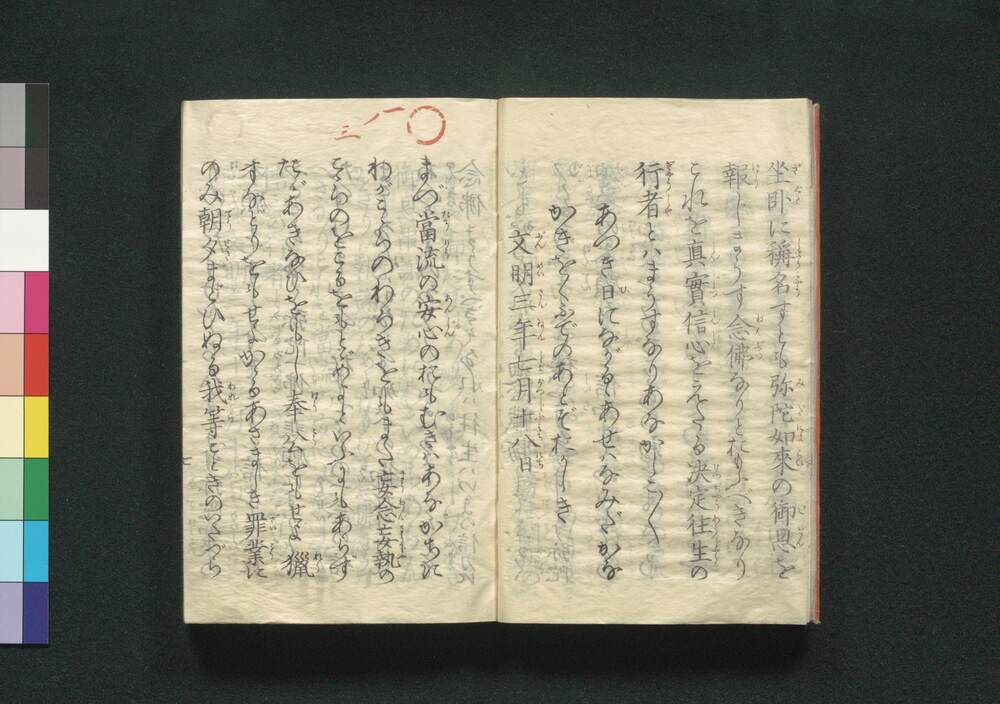 坐卧に稱名すとも弥陀如來の御恩を
報じまうす念佛なりとおもふべきなり
これを真實信心をえたる決定往生の
行者とハまうすなりあなかしこ〱
あつき日にながるゝあせハなみだかな
かきをくふでのあとぞおかしき
文明三年七月十八日
一ノ三
まづ當流の安心のおもむきハあながちに
わがこゝろのわろきをもまた妄念妄執の
こゝろのをこるをもとゞめよといふにもあらず
たゞあきなひをもし奉公をもせよ獵
すなどりをもせよかゝるあさましき罪業に
のみ朝夕まどひぬる我等ごときのいたづら